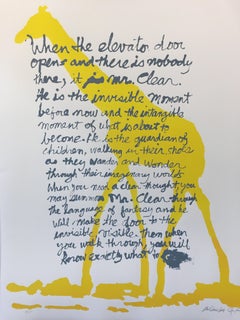 When the elevator door
opens and there is nobody
there, it is Mr. Clear.
He is the invisible moment
before now and the intangible
moment of what is about to
become. He is the guardian of
children, walking in their shoes
as they wander and wonder
through their imaginary worlds
When you need a clear thought, you
may summon Mr. Clear through
the language of fantasy and he
will make the door to the
invisible visible. Then when
you walk through, you will
know exactly what